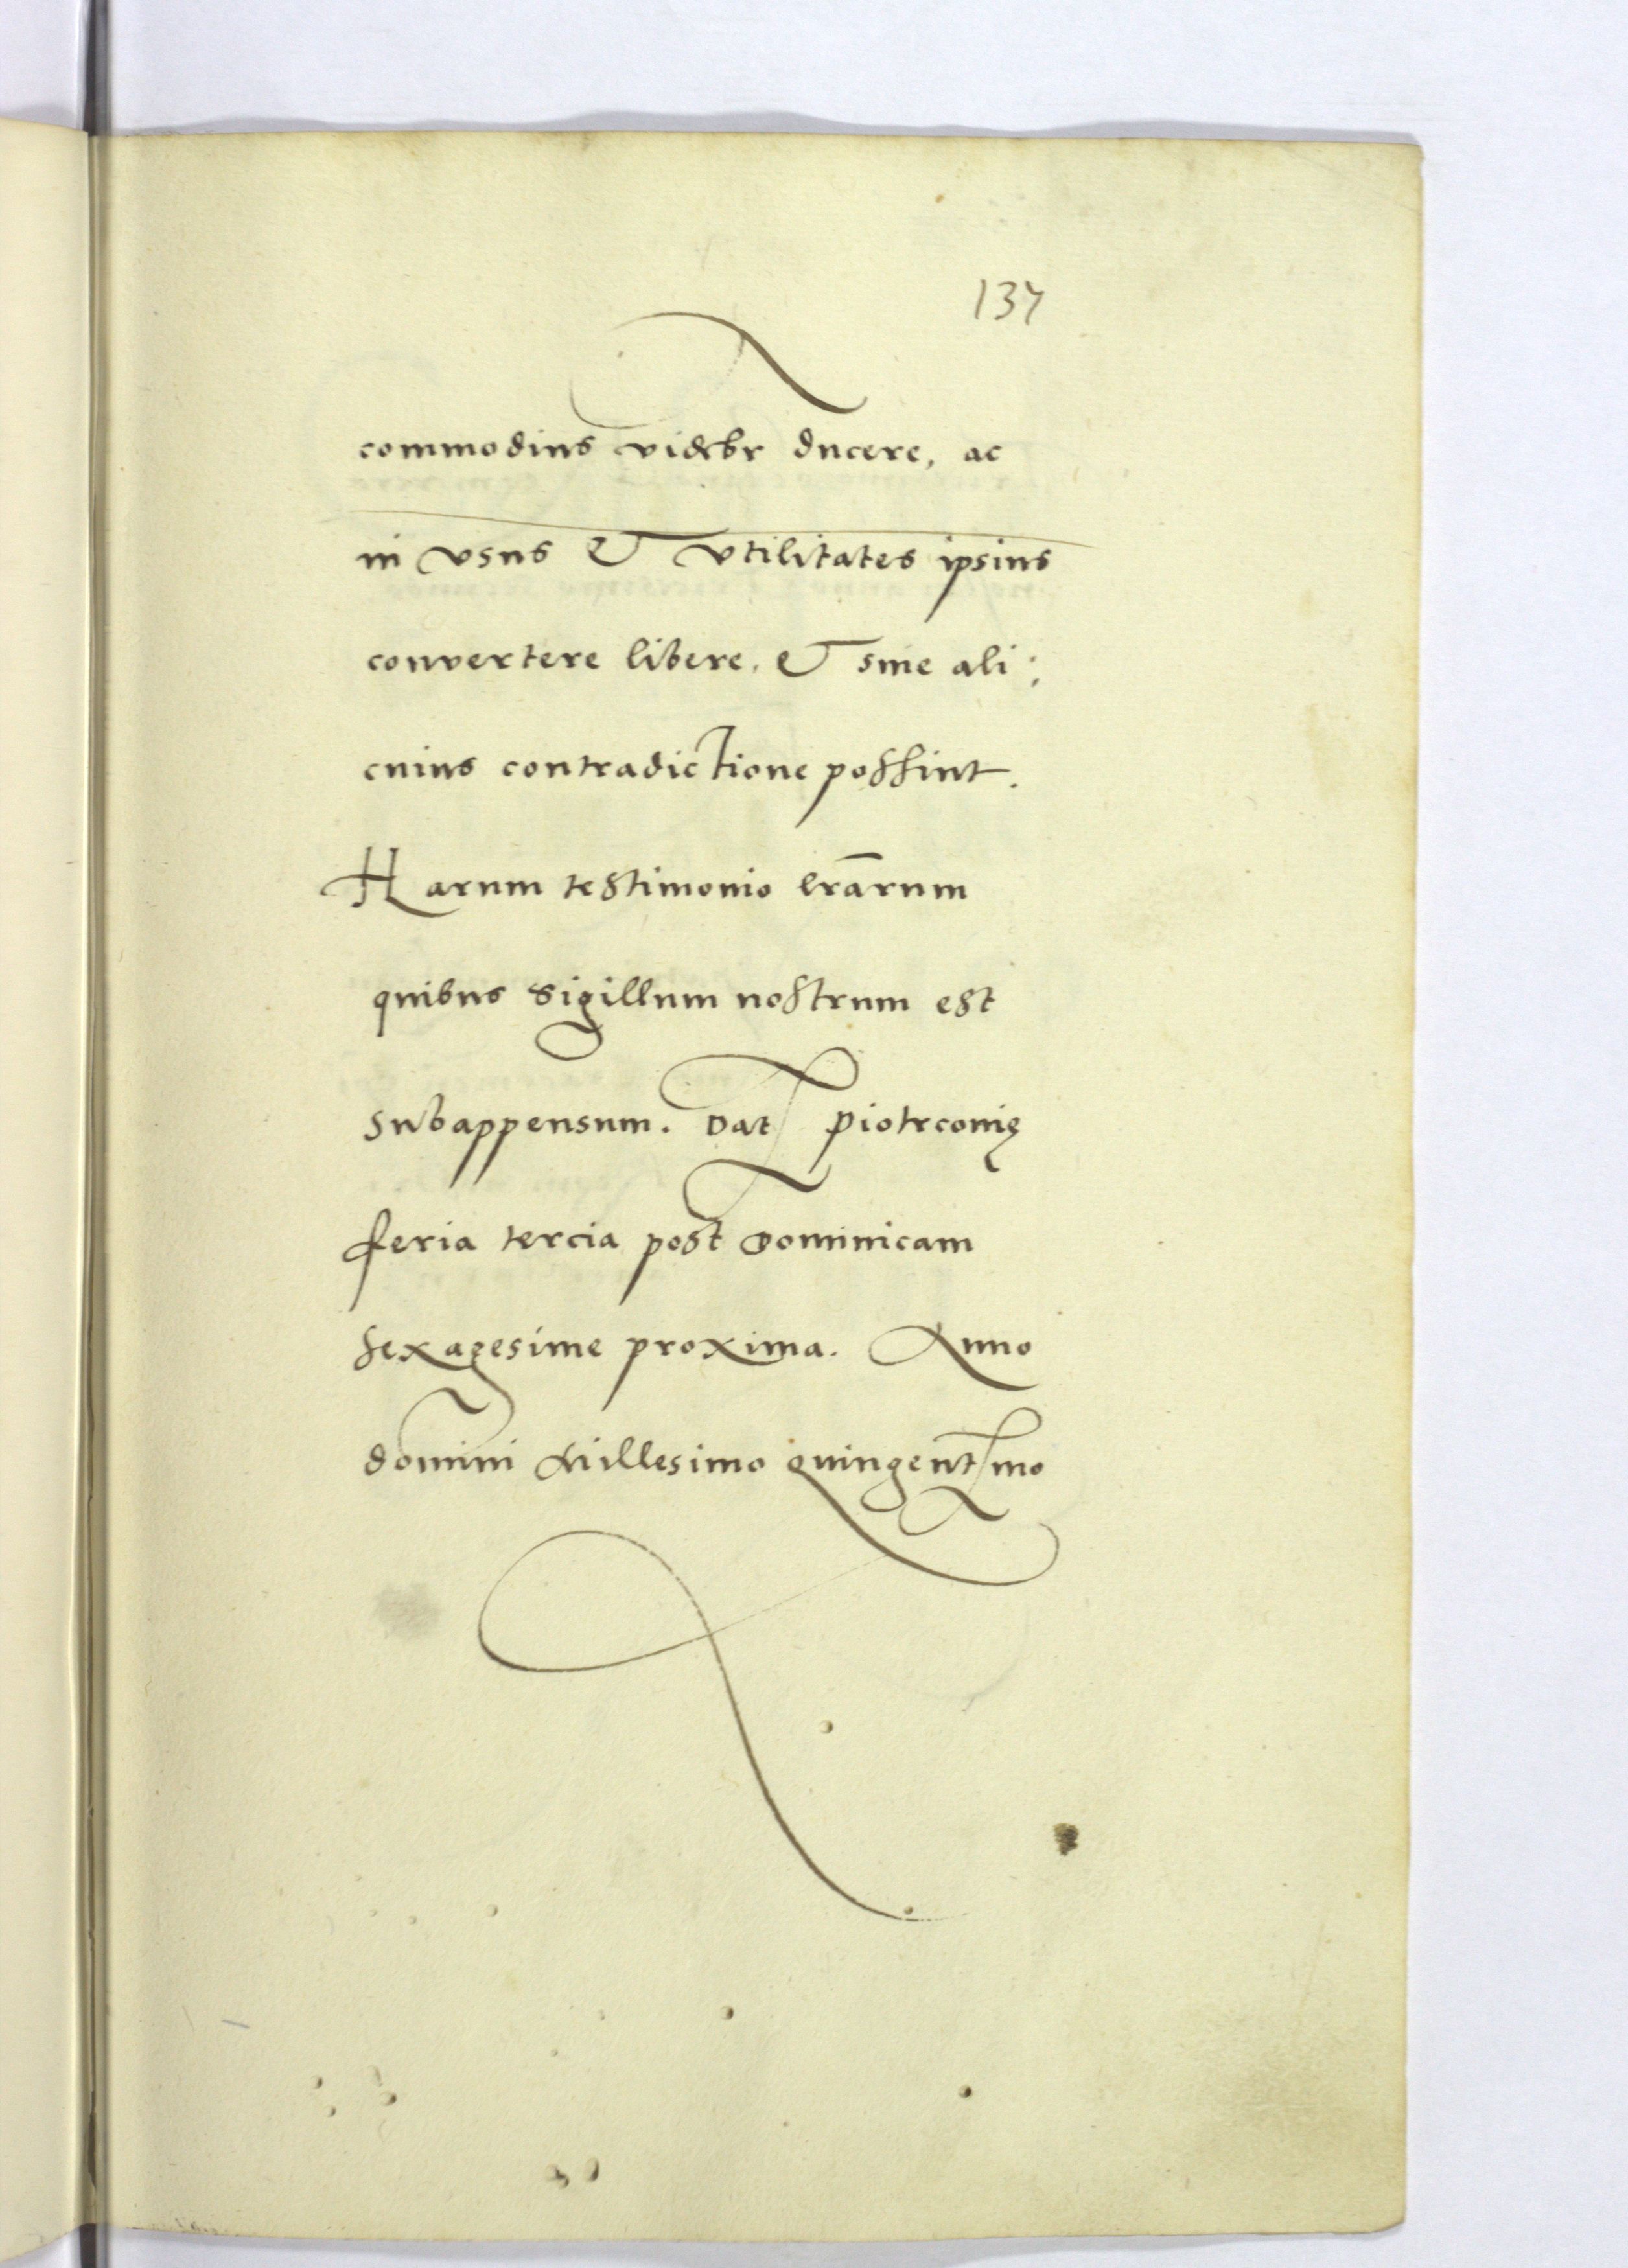 137
commodius videbr ducere, ac
in vsus et vtilitates ipsius
convertere libere. et sine ali:
cuius contradictione possint.
Harum testimonio lrarum
quibus sigillum nostrum est
subappensum. Dat Piotrconię
feria tercia post Dominicam
sexagesime proxima. Anno
domini Millesimo quingentmo